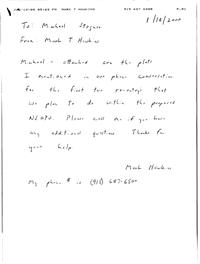 1/18/2000
To: Michael
From: Mark T. Hawkins
Michael - attached are the plats
I mentioned in our phone conversation
for the first two re-surveys that
we plan to do within the proposed
Please call me if you have
any additional questions. Thanks for
your help.
Mark Hawkins
My phone # is